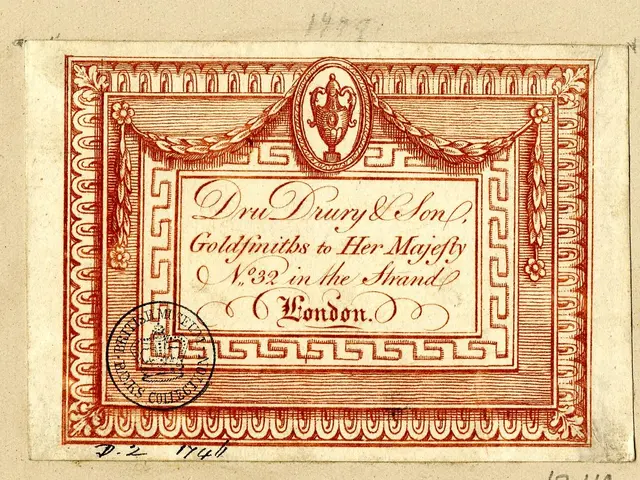 Dru Drury & Son,
Goldſmiths to Her Majeſty
N.º 32 in the Strand
London.
BRITISH MUSEUM
BANKS COLLECTION
D.2